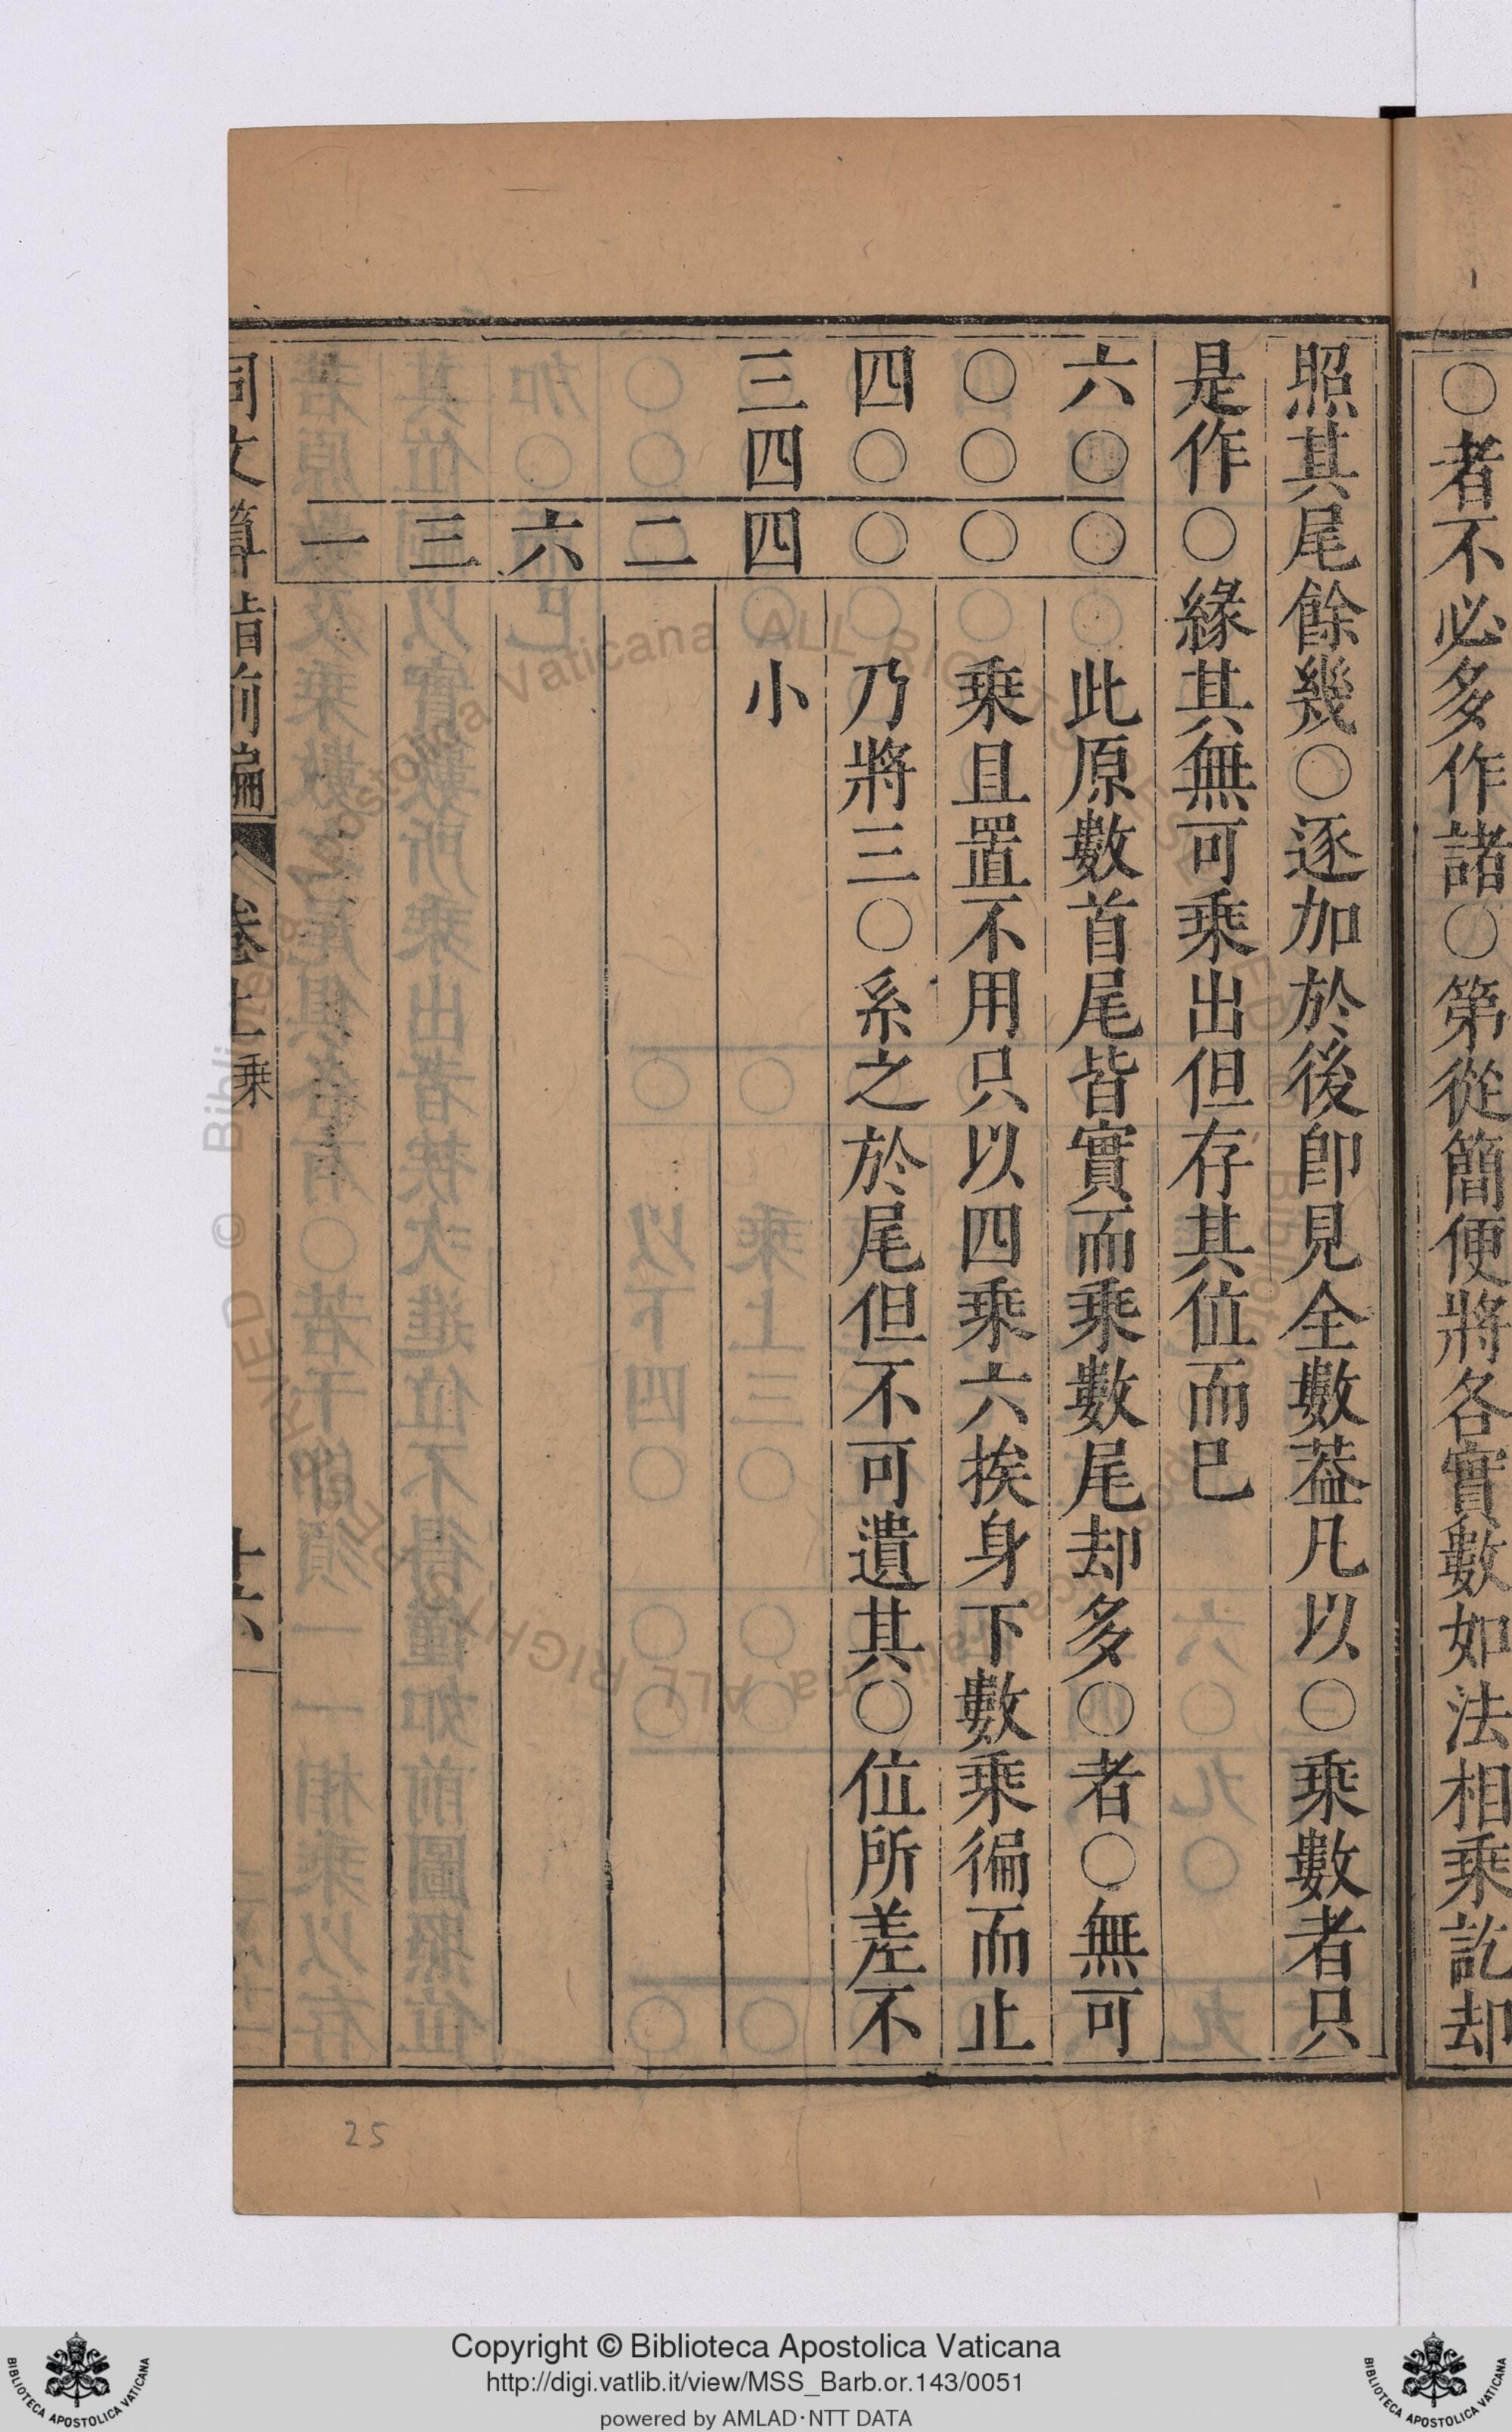 ○者不必多作諸○第從簡便將各實數如法相乘訖却
照其尾餘幾○逐加於後卽見全數葢凡以○乘數者只
是作○緣其無可乘出但存其位而巳
六○○
此原數首尾皆實而乘數尾却多○者○無可
○○○
乘且置不用只以四乘六挨身下數乘徧而止
四○○
乃將三○系之於尾但不可遺其○位所差不
三四四
小
二
六
三
一
同文算指前編
卷上
乘
十六
25
Copyright © Biblioteca Apostolica Vaticana
http://digi.vatlib.it/view/MSS_Barb.or.143/0051
powered by AMLAD·NTT DATA
BIBLIOTECA APOSTOLICA VATICANA
BIBLIOTECA APOSTOLICA VATICANA